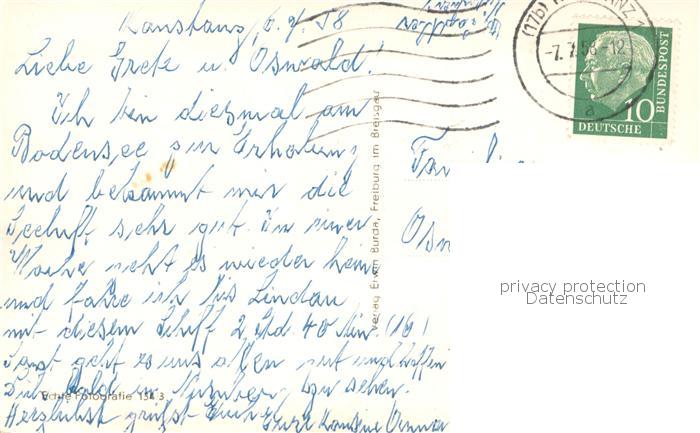 Konstanz, 6.7.58
Liebe Gretl u. Oswald!
Ich bin diesmal am
Bodensee zur Erholung
und bekommt mir die
Seeluft sehr gut. In einer
Woche geht es wieder heim
und fahre ich bis Lindau
mit diesem Schiff 2 Std 40 Min. (16)
Sonst geht es uns allen gut und hoffen
Dich bald in Nürnberg zu sehen.
Herzlichst grüßt Euch
Eure
Verlag Erwin Burda, Freiburg im Breisgau
Echte Fotografie 154 3
(17b) KONSTANZ 1
-7.7.58-12
a
10
DEUTSCHE
BUNDESPOST
Fa
Osw
privacy protection
Datenschutz